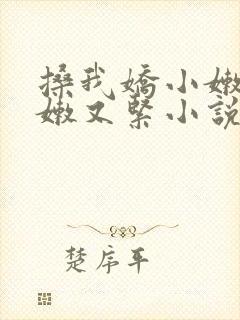 搡我嬌小嫩
嫩又緊小說
楚序平